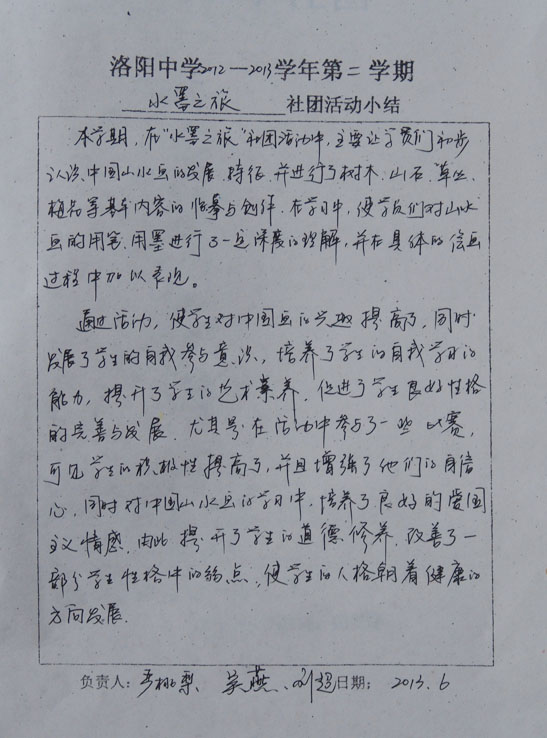 洛阳中学2012—2013学年第二学期
水墨之旅 社团活动小结
本学期,在"水墨之旅"社团活动中,主要让学员们初步
认识中国山水画的发展、特征,并进行了树木、山石、草丛、
梅花等基本内容的临摹与创作。在学习中,使学员们对山水
画的用笔、用墨进行了一定深度的理解,并在具体的绘画
过程中加以表现。
通过活动,使学生对中国画的兴趣提高了,同时
发展了学生的自我参与意识,培养了学生的自我学习的
能力,提升了学生的艺术素养,促进了学生良好性格
的完善与发展。尤其是在活动中参与了一些比赛,
可见学生的积极性提高了,并且增强了他们的自信
心,同时对中国山水画的学习中,培养了良好的爱国
主义情感,由此提升了学生的道德修养,改善了一
部分学生性格中的弱点,使学生的人格朝着健康的
方向发展.
负责人: 桃梨、吴燕、刘超 日期: 2013.6